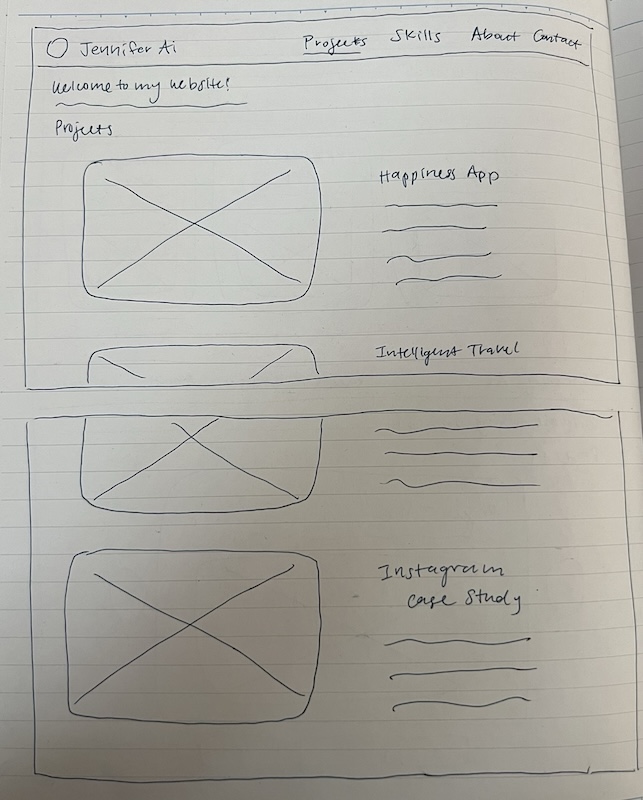 Jennifer Ai Projects Skills About Contact
Welcome to my website!
Projects
Happiness App
Intelligent Travel
Instagram
Case Study